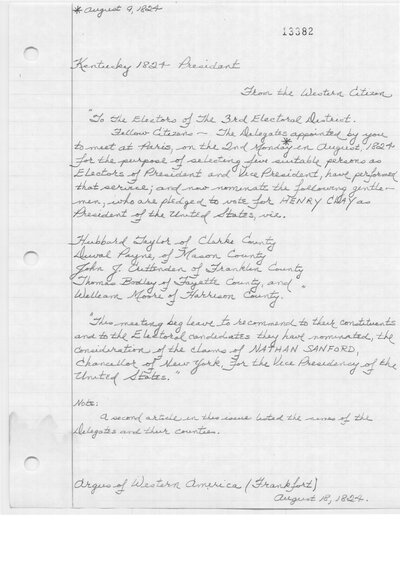 * August 9, 1824
13382
Kentucky 1824 President
From the Western Citizen
"To the Electors of The 3rd Electoral District.
Fellow Citizens — The Delegates appointed by you
to meet at Paris, on the 2nd Monday * in August, 1824
for the purpose of selecting five suitable persons as
Electors of President and Vice President, have performed
that service; and now nominate the following gentle-
men, who are pledged to vote for HENRY CLAY as
President of the United States, viz.
Hubbard Taylor of Clarke County
Duval Payne, of Mason County
John J. Crittenden of Franklin County
Thomas Bodley of Fayette County, and
William Moore of Harrison County. "
"This meeting beg leave to recommend to their constituents
and to the Electoral candidates they have nominated, the
consideration of the claims of NATHAN SANFORD,
Chancellor of New York, for the Vice Presidency of the
United States.
Note:
A second article in this issue listed the names of the
Delegates and their counties.
Argus of Western America (Frankfort)
August 18, 1824.